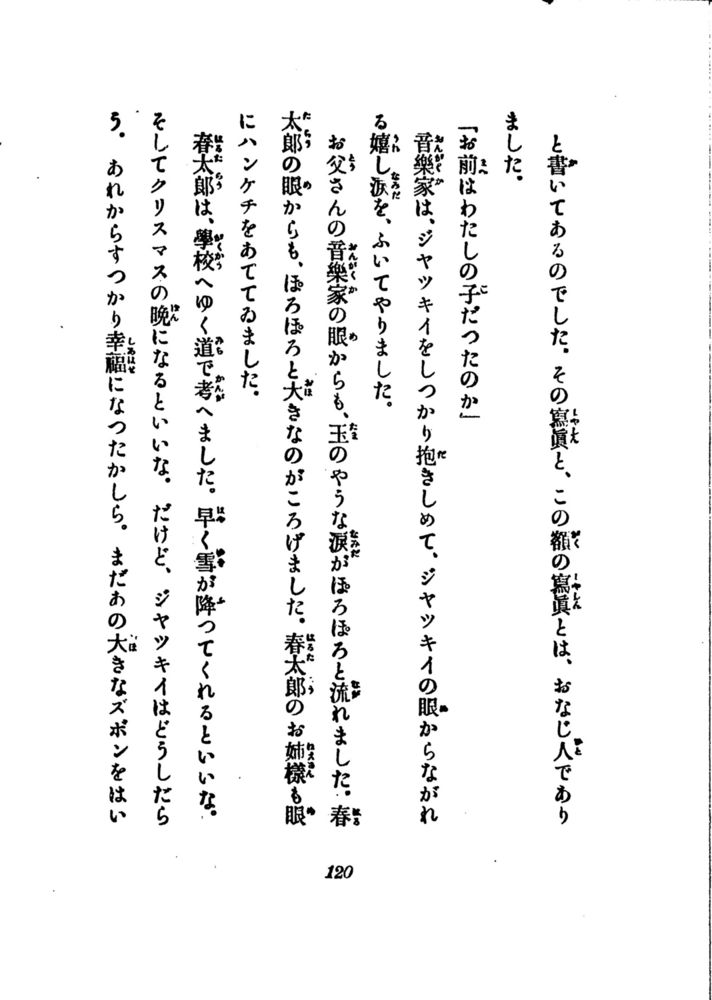 と書いてあるのでした。その寫眞と、この額の寫眞とは、おなじ人であり
ました。
「お前はわたしの子だつたのか」
音樂家は、ジヤツキイをしつかり抱きしめて、ジヤツキイの眼からながれ
る嬉し淚を、ふいてやりました。
お父さんの音樂家の眼からも、玉のやうな淚がぽろぽろと流れました。春
太郎の眼からも、ぽろぽろと大きなのがころげました。春太郎のお姉樣も眼
にハンケチをあててゐました。
春太郎は、學校へゆく道で考へました。早く雪が降つてくれるといいな。
そしてクリスマスの晚になるといいな。だけど、ジヤツキイはどうしだら
う。あれからすつかり幸福になつたかしら。まだあの大きなズボンをはい
120